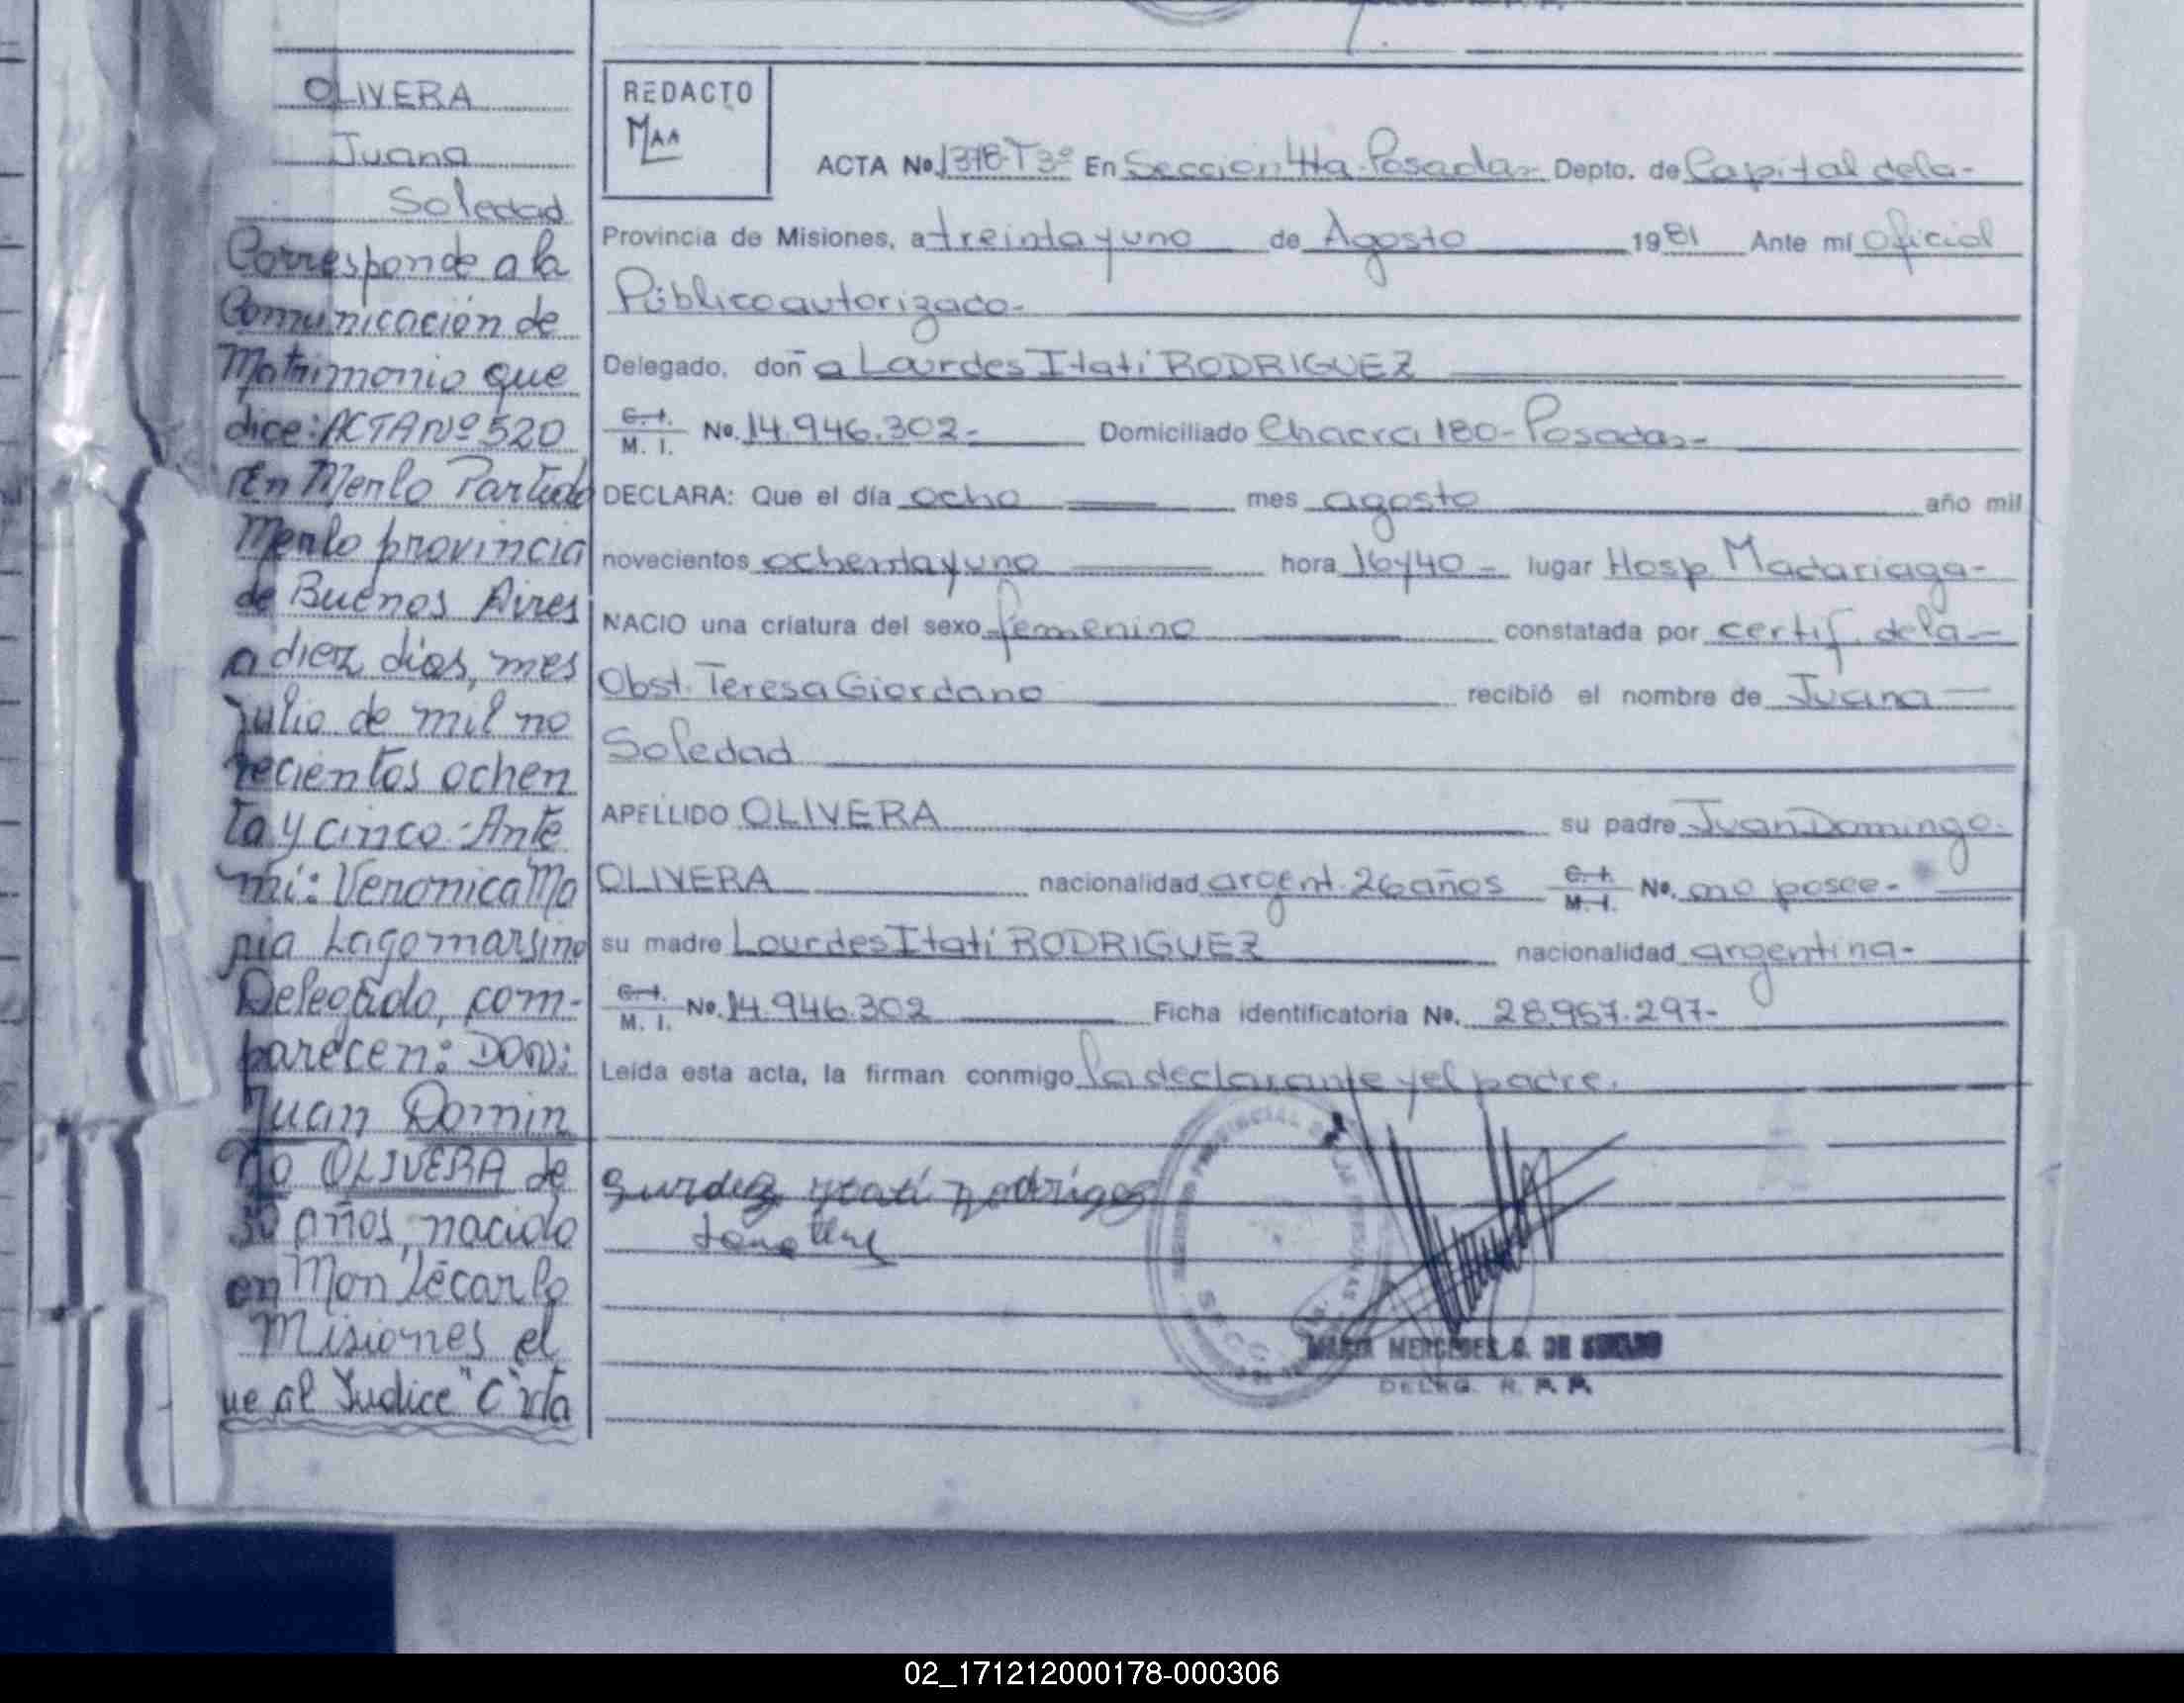 OLIVERA
Juana
Soledad
Corresponde a la
Comunicación de
Matrimonio que
dice: ACTA Nº 520
En Menlo Partido
Menlo provincia
de Buenos Aires
a diez dias, mes
Julio de mil no
vecientos ochen
ta y cinco.- Ante
mi: Veronica Ma
ria Lagomarsino
Delegado, com-
parecen: DON:
Juan Domin
go OLIVERA de
30 años, nacido
en Montecarlo
Misiones el
ue al Judice "C" rta
REDACTO
ACTA No. 1378-T3º En Seccion 4ta Posadas Depto. de Capital dela-
Provincia de Misiones, a treinta y uno de Agosto 1981 Ante mí oficial
Público autorizado-
Delegado, doña Lourdes Itatí RODRIGUEZ
C. I. M. I. No. 14.946.302- Domiciliado Chacra 180-Posadas-
DECLARA: Que el día ocho mes agosto año mil
novecientos ochenta y uno hora 16y40- lugar Hosp Madariaga-
NACIO una criatura del sexo femenino constatada por certif. dela-
Obst. Teresa Giordano recibió el nombre de Juana
Soledad
APELLIDO OLIVERA su padre Juan Domingo.
OLIVERA nacionalidad argent. 26 años C. I. M. I. No. no posee-
su madre Lourdes Itatí RODRIGUEZ nacionalidad argentina-
C. I. M. I. No. 14.946.302 Ficha identificatoria No. 28.957.297-
Leida esta acta, la firman conmigo la declarante y el padre.
MERCEDES G. DE
DELEG. R. P. P.
02_171212000178-000306